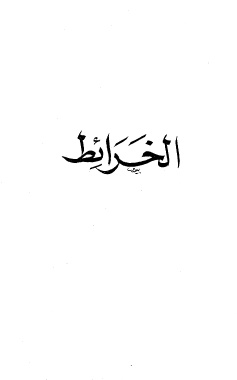 الخَرَائِط